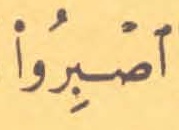 ٱصۡبِرُواْ